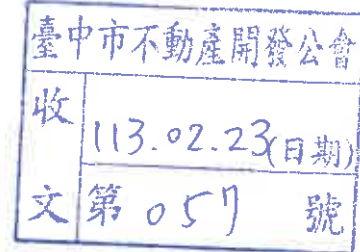 臺中市不動產開發公會
收
113.02.23(日期)
文 第 057 號